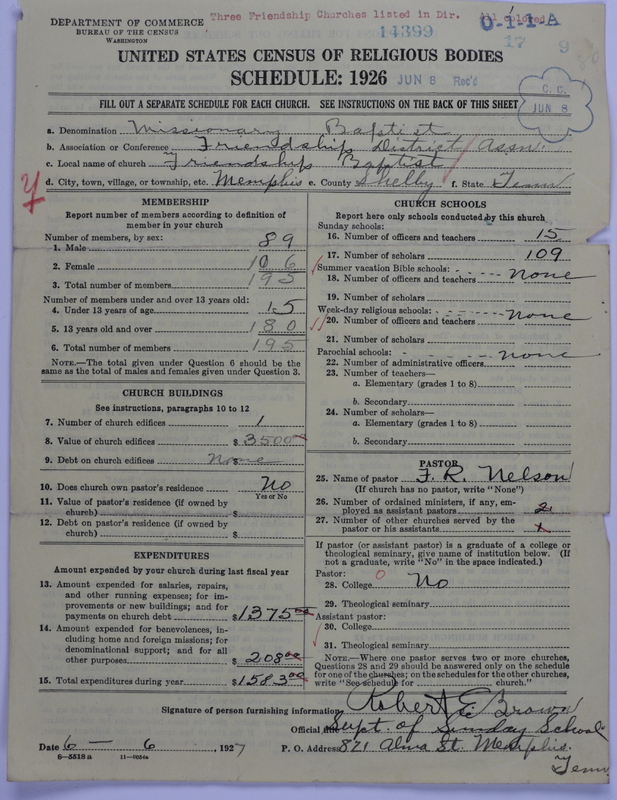 Three Friendship Churches listed in Dir. All Colored
DEPARTMENT OF COMMERCE
BUREAU OF THE CENSUS
WASHINGTON
14399
0-1-1-A
17 9
UNITED STATES CENSUS OF RELIGIOUS BODIES
SCHEDULE: 1926
JUN 8 Rec'd
C. C.
JUN 8
FILL OUT A SEPARATE SCHEDULE FOR EACH CHURCH. SEE INSTRUCTIONS ON THE BACK OF THIS SHEET
a. Denomination Missionary Baptist
b. Association or Conference Friendship District Assn.
c. Local name of church Friendship Baptist
d. City, town, village, or township, etc. Memphis e. County Shelby f. State Tenn
MEMBERSHIP
Report number of members according to definition of
member in your church
Number of members, by sex:
1. Male 89
2. Female 106
3. Total number of members 195
Number of members under and over 13 years old:
4. Under 13 years of age 15
5. 13 years old and over 180
6. Total number of members 195
NOTE.—The total given under Question 6 should be
same as the total of males and females given under Question 3.
CHURCH BUILDINGS
See instructions, paragraphs 10 to 12
7. Number of church edifices 1
8. Value of church edifices $ 3500
9. Debt on church edifices None
10. Does church own pastor's residence No
Yes or No
11. Value of pastor's residence (if owned by
church) $
12. Debt on pastor's residence (if owned by
church) $
EXPENDITURES
Amount expended by your church during last fiscal year
13. Amount expended for salaries, repairs,
and other running expenses; for im-
provements or new buildings; and for
payments on church debt $ 1375 00
14. Amount expended for benevolences, in-
cluding home and foreign missions; for
denominational support; and for all
other purposes $ 208 00
15. Total expenditures during year $ 1583 00
CHURCH SCHOOLS
Report here only schools conducted by this church
Sunday schools:
16. Number of officers and teachers 15
17. Number of scholars 109
Summer vacation Bible schools: none
18. Number of officers and teachers
19. Number of scholars
Week-day religious schools: none
20. Number of officers and teachers
21. Number of scholars
Parochial schools: none
22. Number of administrative officers
23. Number of teachers—
a. Elementary (grades 1 to 8)
b. Secondary
24. Number of scholars—
a. Elementary (grades 1 to 8)
b. Secondary
PASTOR
25. Name of pastor F. R. Nelson
(If church has no pastor, write "None")
26. Number of ordained ministers, if any, em-
ployed as assistant pastors 2
27. Number of other churches served by the
pastor or his assistants x
If pastor (or assistant pastor) is a graduate of a college or
theological seminary, give name of institution below. (If
not a graduate, write "No" in the space indicated.)
Pastor: 0
28. College No
29. Theological seminary
Assistant pastor:
30. College
31. Theological seminary
NOTE.—Where one pastor serves two or more churches,
Questions 28 and 29 should be answered only on the schedule
for one of the churches; on the schedules for the other churches,
write "See schedule for church."
Signature of person furnishing information Robert E. Brown
Official title Supt. of Sunday School
Date 6 — 6, 1927 P. O. Address 871 Alma St. Memphis.
Tenn
8-5518a 11-9054a